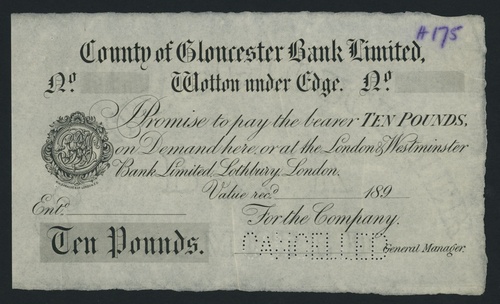 # 175
County of Gloucester Bank Limited,
No. Wotton under Edge. No.
I Promise to pay the bearer TEN POUNDS,
on Demand here, or at the London & Westminster
Bank Limited, Lothbury, London.
Value rec.d 189
Ent.d
For the Company.
Ten Pounds.
CANCELLED
General Manager.